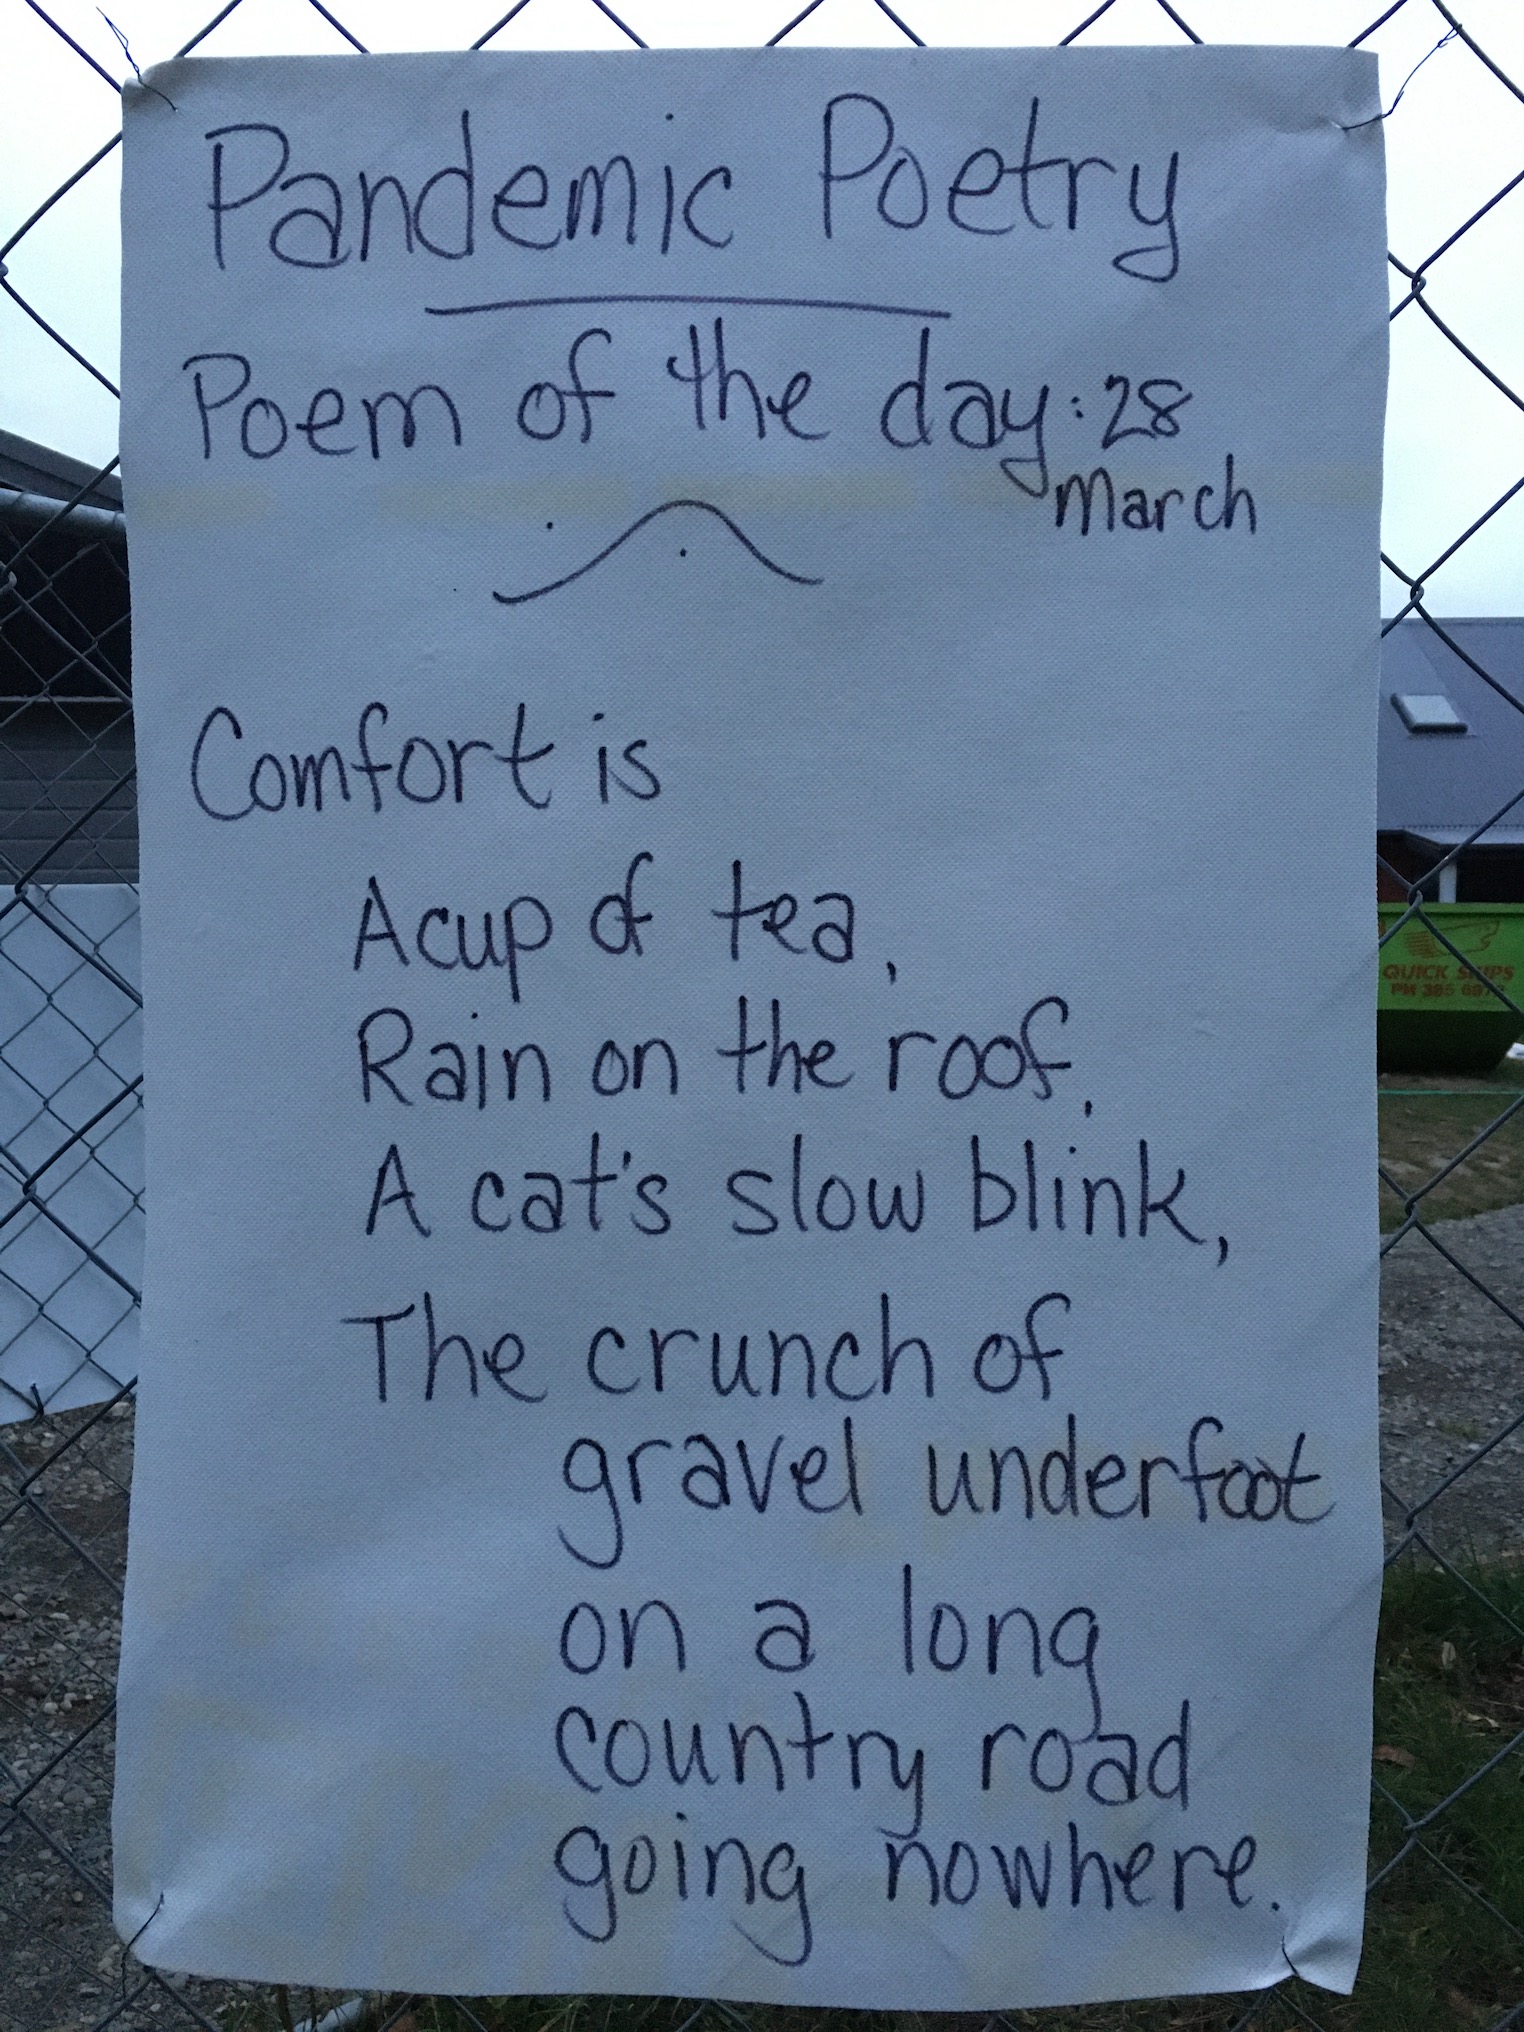 Pandemic Poetry
Poem of the day: 28
March
Comfort is
A cup of tea,
Rain on the roof,
A cat's slow blink,
The crunch of
gravel underfoot
on a long
country road
going nowhere.
QUICK SKIPS
PH 385